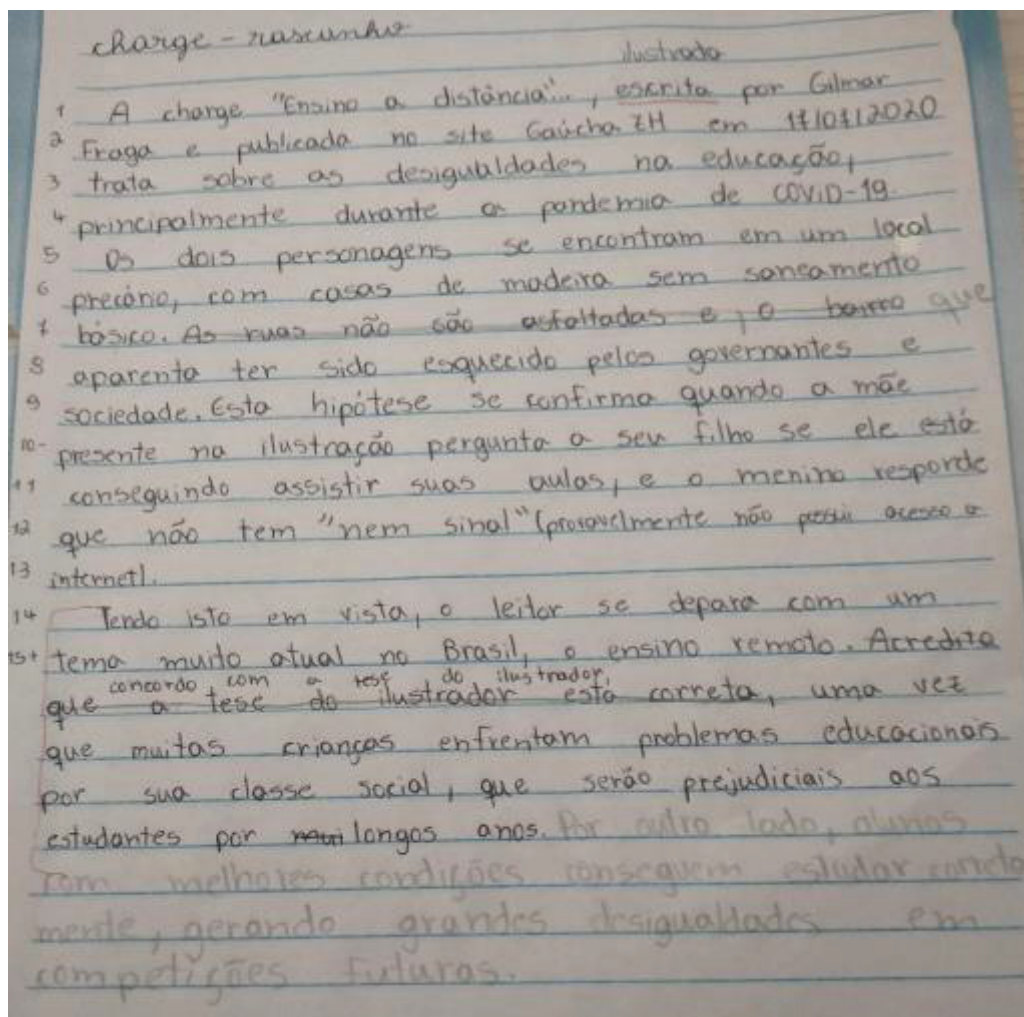 charge - rascunho
ilustrada
1 A charge "Ensino a distância"..., escrita por Gilmar
2 Fraga e publicada no site Gaúcha ZH em 17/07/2020
3 trata sobre as desigualdades na educação,
4 principalmente durante a pandemia de COVID-19.
5 Os dois personagens se encontram em um local
6 precário, com casas de madeira sem saneamento
7 básico. As ruas não são asfaltadas e, o bairro que
8 aparenta ter sido esquecido pelos governantes e
9 sociedade. Esta hipótese se confirma quando a mãe
10- presente na ilustração pergunta a seu filho se ele está
11 conseguindo assistir suas aulas, e o menino responde
12 que não tem "nem sinal" (provavelmente não possui acesso a
13 internet).
14 Tendo isto em vista, o leitor se depara com um
15+ tema muito atual no Brasil, o ensino remoto. Acredito
concordo com a tese do ilustrador,
que a tese do ilustrador está correta, uma vez
que muitas crianças enfrentam problemas educacionais
por sua classe social, que serão prejudiciais aos
estudantes por longos anos. Por outro lado, alunos
com melhores condições conseguem estudar correta
mente, gerando grandes desigualdades em
competições futuras.